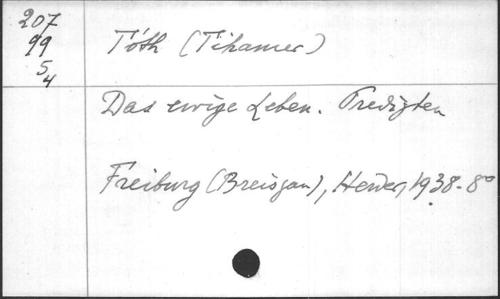 207
99
5
4
Tóth (Tihamer)
Das ewige Leben. Predigten
Freiburg (Breisgau), Herder, 1938. 8°